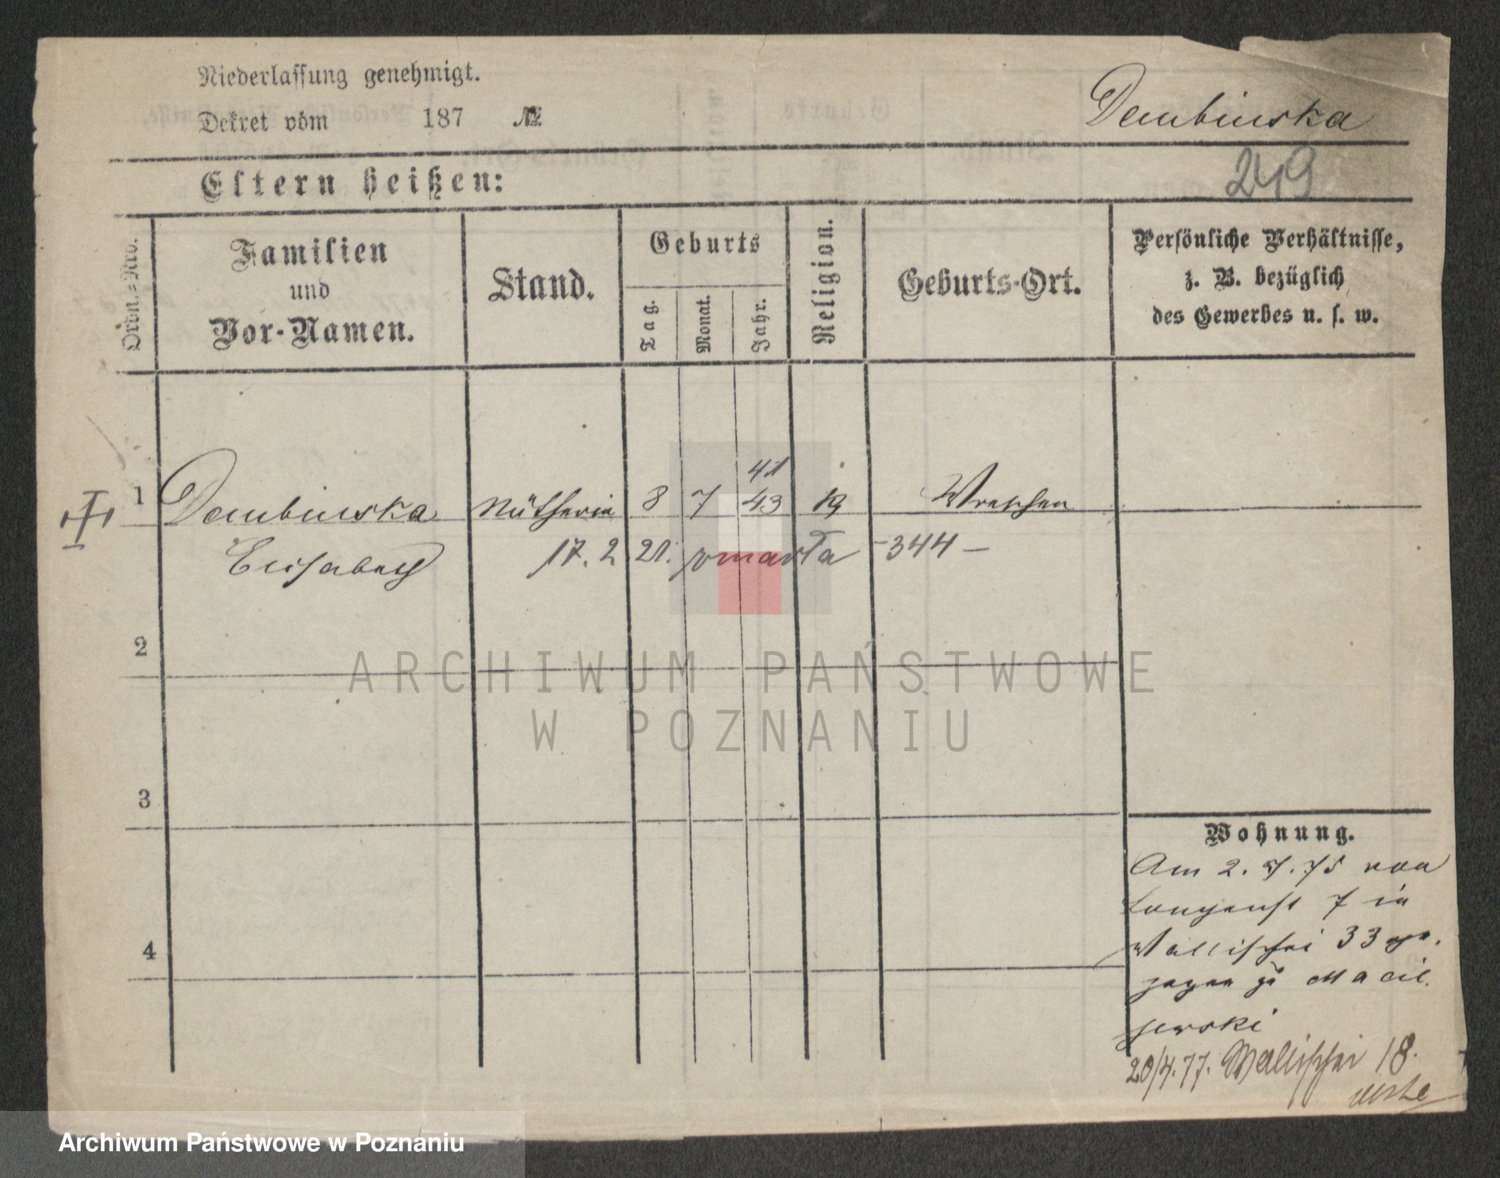 Niederlassung genehmigt.
Dekret vom 187 №
Dembinska
249
Eltern heißen:
Ordn.-Nro.
Familien
und
Vor-Namen.
Stand.
Geburts
Tag.
Monat.
Jahr.
Religion.
Geburts-Ort.
Persönliche Verhältnisse,
z. B. bezüglich
des Gewerbes u. s. w.
41
1 Dembinska Nätherin 8 7 43 Wreschen
Elisabeth 17. 2 21. zmarła -344-
2
3
4
ARCHIWUM PAŃSTWOWE
W POZNANIU
Wohnung.
Am 2. 7. 75 von
Langenst 7 in
Wallischei 33 ge-
zogen zu Maciejewski
20/4. 77. Wallischei 18.
Archiwum Państwowe w Poznaniu